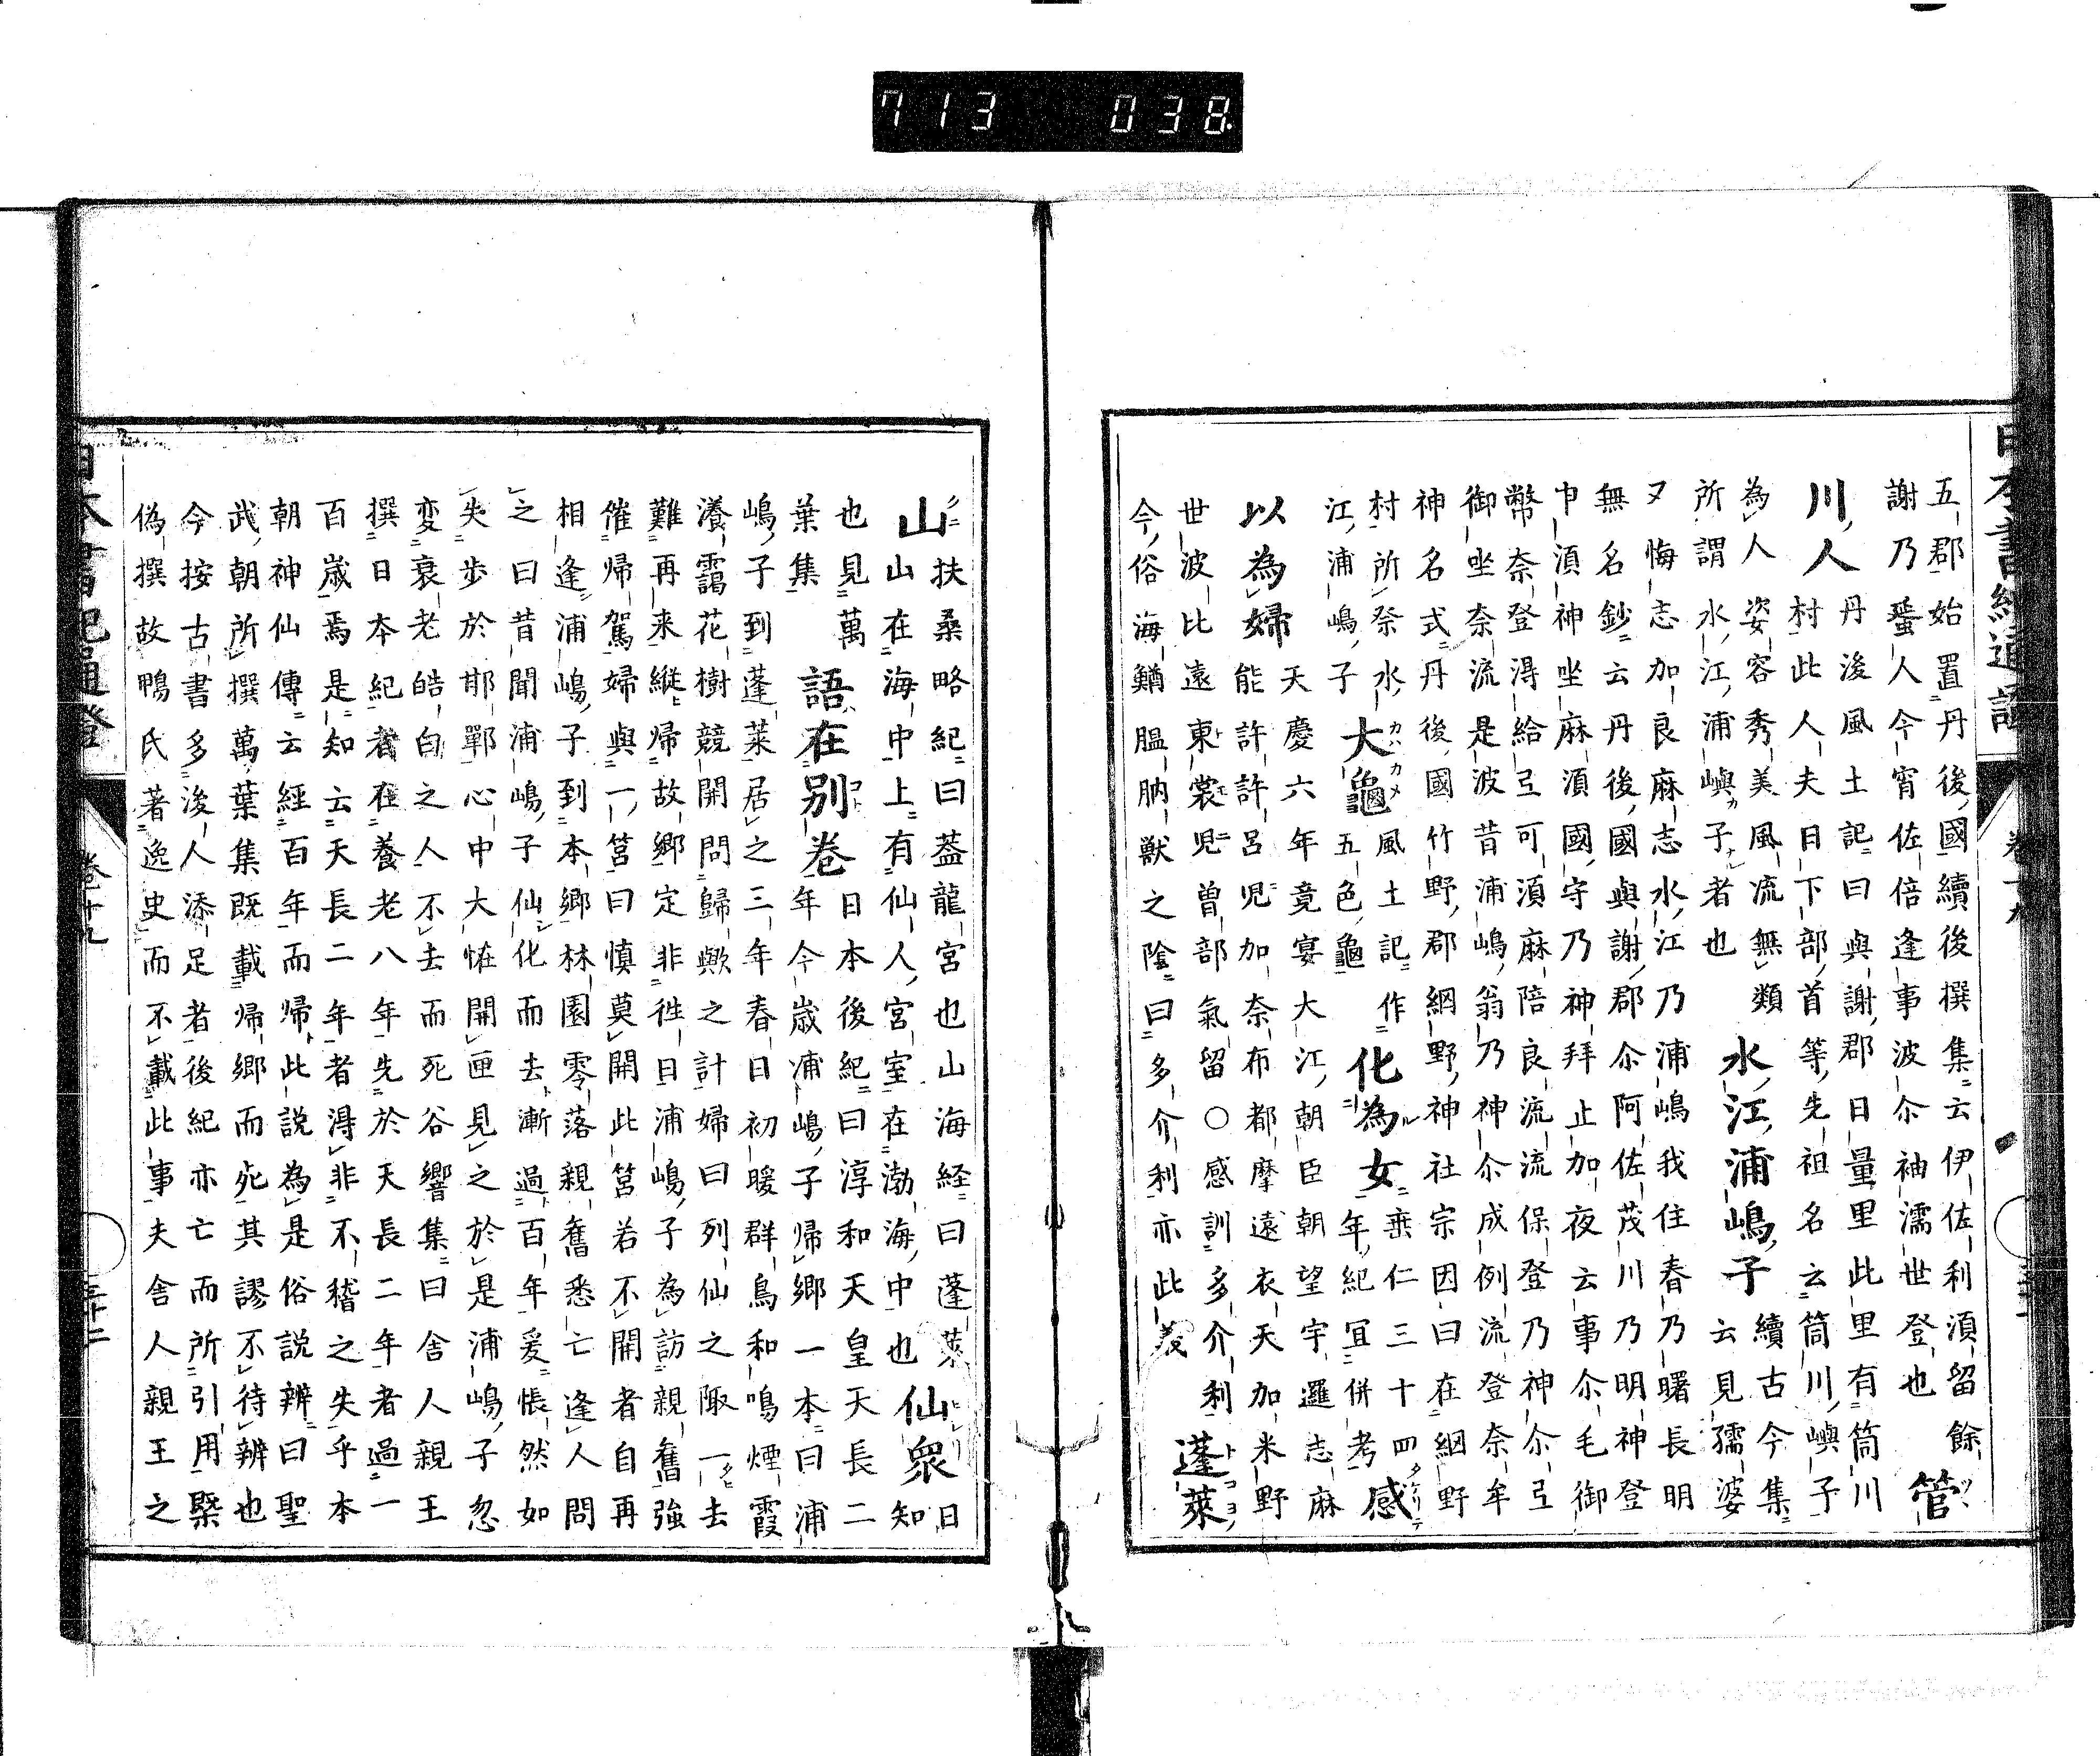 713 038
五郡始置丹後國續後撰集云伊佐利湏留餘
謝乃蜑人今宵佐倍逢事波尒袖濡世登也 管
川人 丹後風土記曰與謝郡日量里此里有筒川
村此人夫日下部首等先祖名云筒川嶼子
為人姿容秀美風流無類 水江浦嶋子 續古今集
所謂水江浦嶼子者也 云見孺婆
又悔志加良麻志水江乃浦嶋我住春乃曙長明
無名鈔云丹後國與謝郡尒阿佐茂川乃明神登
申湏神坐麻湏國守乃神拜止加夜云事尒毛御
幣奈登淂給弖可湏麻陪良流流保登乃神尒弖
御坐奈流是波昔浦嶋翁乃神尒成例流登奈牟
神名式丹後國竹野郡網野神社宗因曰在網野
村所祭水 大龜 風土記作 化為女 垂仁三十四 感
江浦嶋子 五色龜 年紀冝併考
以為婦 天慶六年竟宴大江朝臣朝望宇邏志麻
能許許呂児加奈布都摩遠衣天加米野
世波比遠東裳児曽部氣留○感訓多介利 蓬萊
今俗海鰌膃肭獣之陰曰多介利亦此義
山 扶桑略紀曰蓋龍宮也山海経曰蓬萊 仙衆 日
山在海中上有仙人宮室在渤海中也 知
也見萬 語在別卷 日本後紀曰淳和天皇天長二
葉集 年今歳浦嶋子帰鄉一本曰浦
嶋子到蓬萊居之三年春日初暖群鳥和鳴煙霞
瀁靄花樹競開問歸歟之計婦曰列仙之陬一去
難再来縱帰故鄉定非徃日浦嶋子為訪親舊強
催帰駕婦與一筥曰慎莫開此筥若不開者自再
相逢浦嶋子到本鄉林園零落親舊悉亡逢人問
之曰昔聞浦嶋子仙化而去漸過百年爰悵然如
失步於邯鄲心中大恠開匣見之於是浦嶋子忽
変衰老皓白之人不去而死谷響集曰舍人親王
撰日本紀者在養老八年先於天長二年者過一
百歳焉是知云天長二年者淂非不稽之失乎本
朝神仙傳云經百年而帰此説為是俗説辨曰聖
武朝所撰萬葉集既載帰鄉而死其謬不待辨也
今按古書多後人添足者後紀亦亡而所引用槩
偽撰故鴨氏著逸史而不載此事夫舍人親王之
日本書紀通證 卷十九 三十二